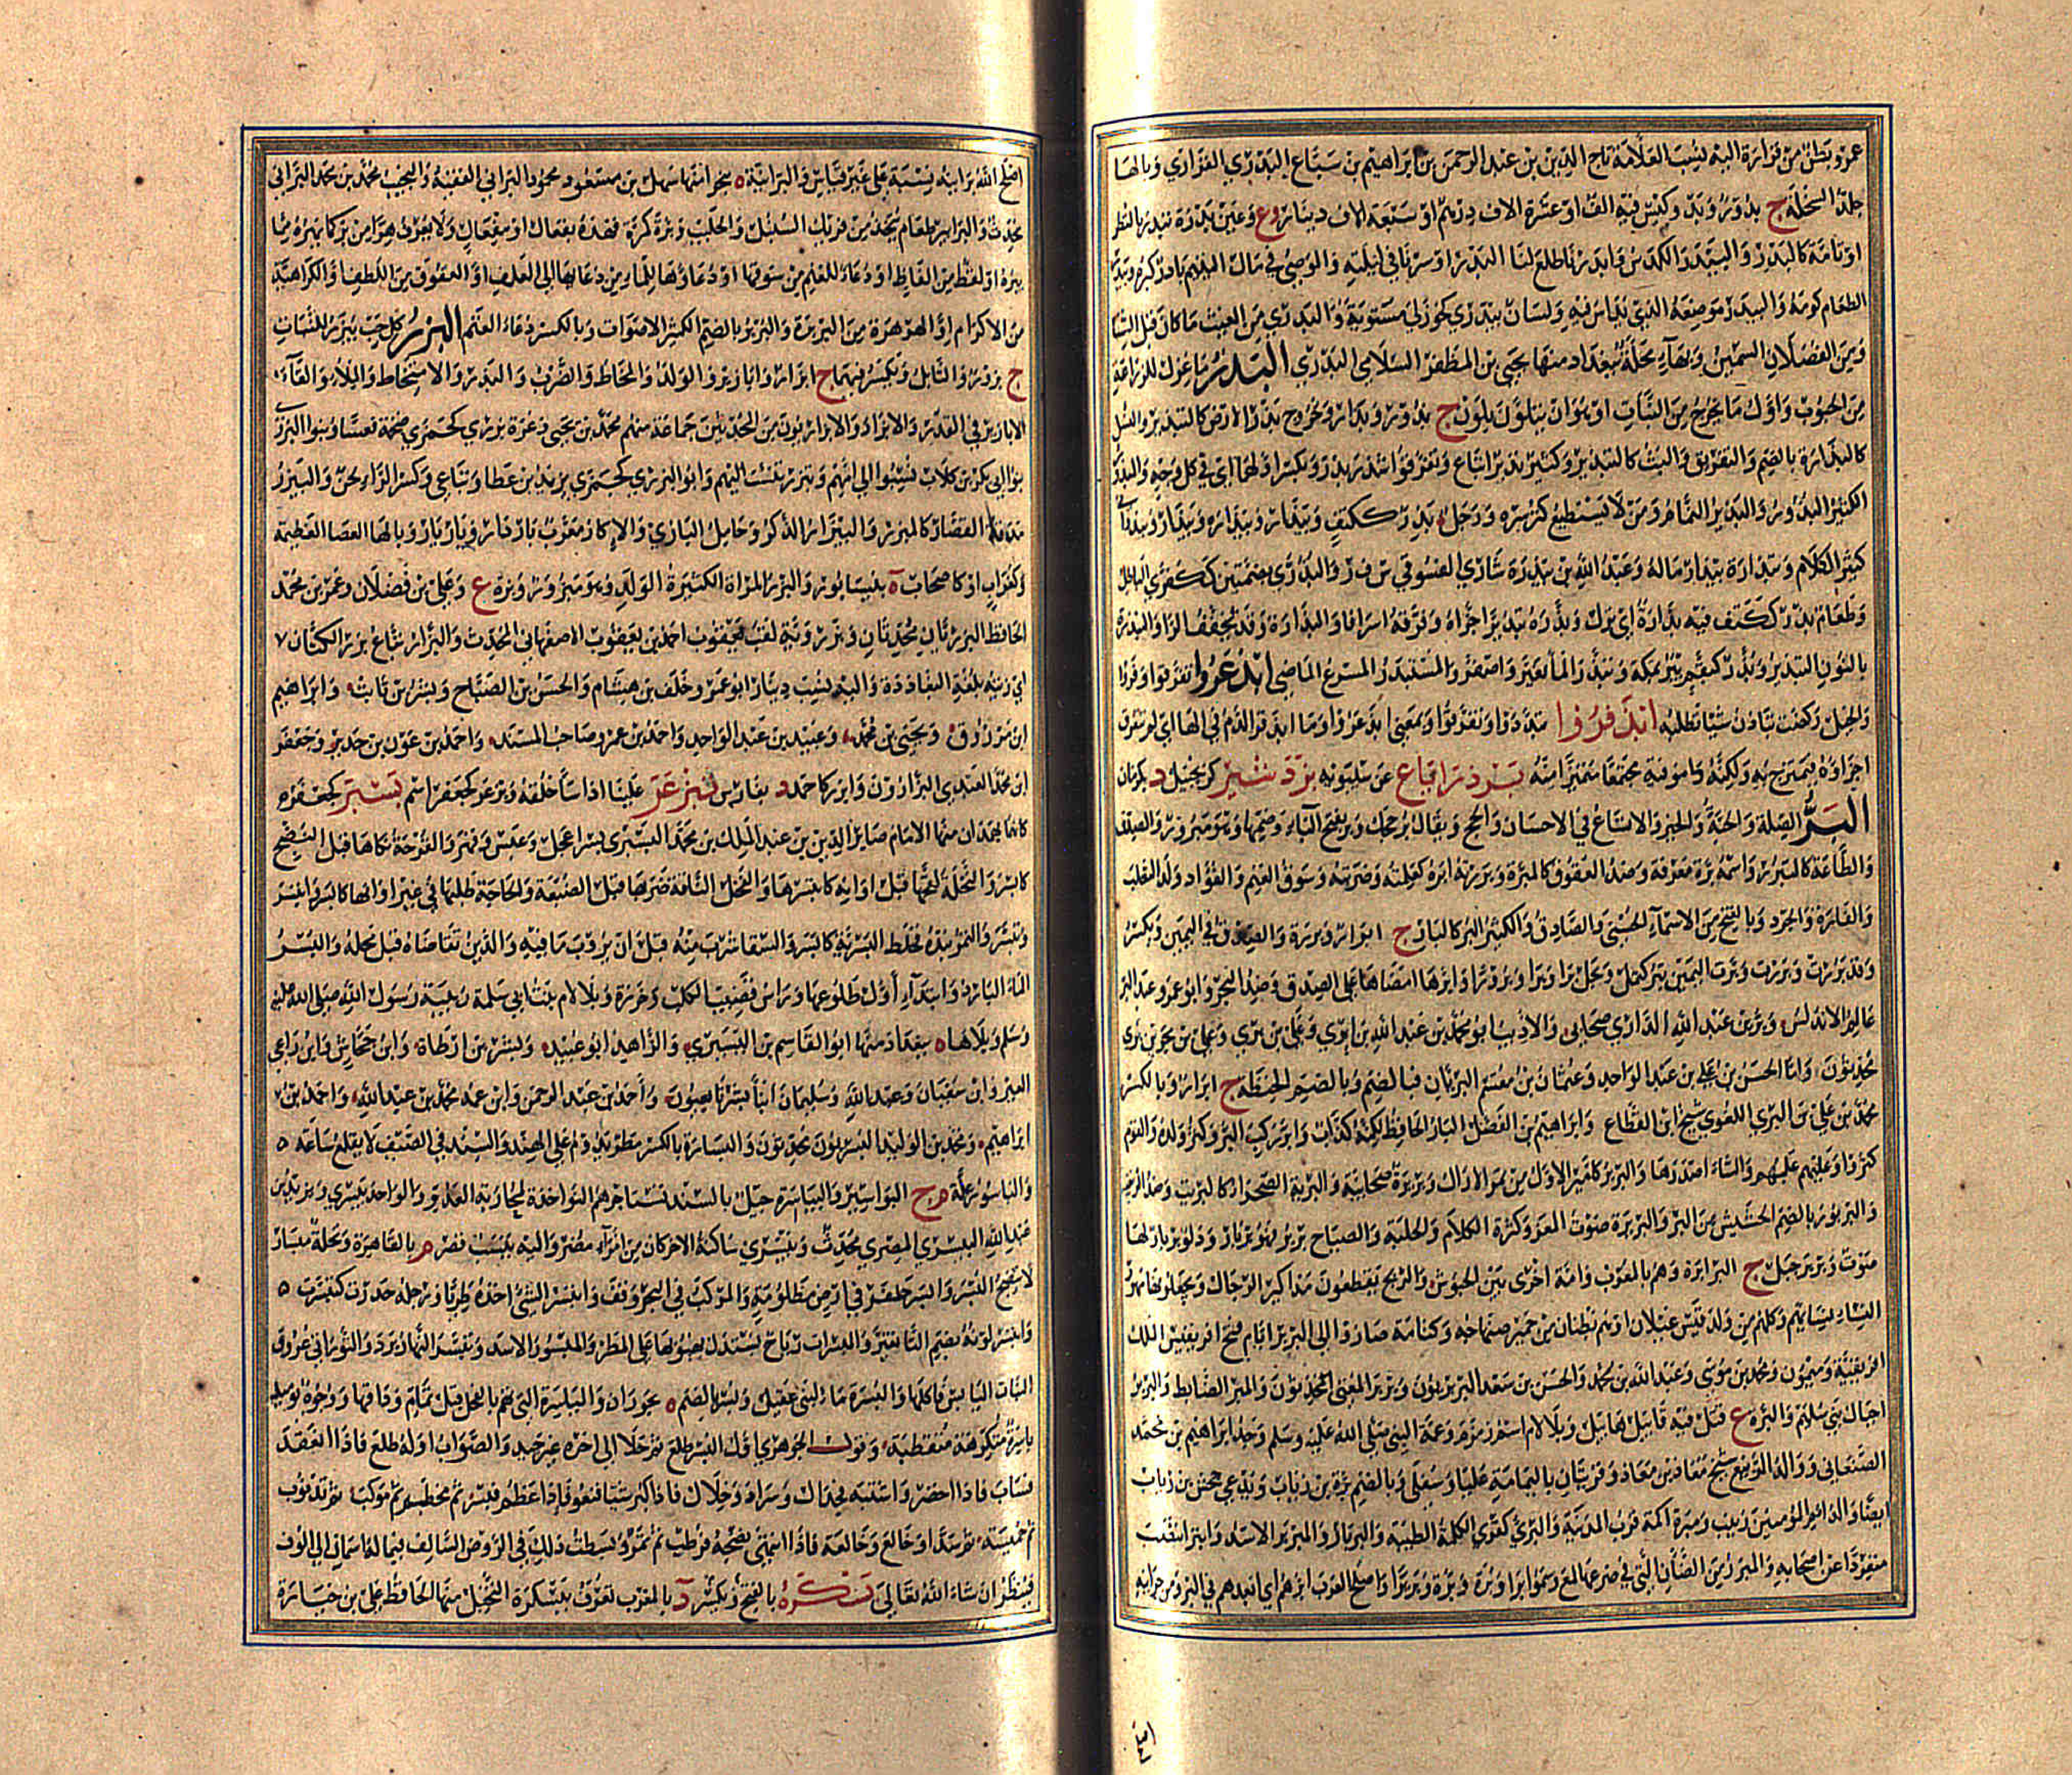 عمرو وبطن من فزارة اليه نسب العلامة تاج الدين بن عبد الرحمن بن ابراهيم بن سباع البدري الفزاري وبالهاء
جلد السخلة ج بدور وبدر وكيس فيه الف او عشرة الاف درهم او سبعة الاف دينار وع وعين بدرة تبدر بالنظر
او تامة كالبدر والبيدر الكدس وابدرنا طلع لنا البدر او سرنا في ليلته والوصي في مال اليتيم بادر كبره وبدر
الطعام كومه والبيدر موضعه الذي يداس فيه ولسان بيدري كخوزلى مستوية والبدري من الغيث ما كان قبل الشتا
ومن الفصلان السمين وبهاء محلة ببغداد منها يحيى بن المظفر السلامي البدري البذر ما عزل للزراعة
من الحبوب واول ما يخرج من النبات او هو ان يتلون بلون ج بذور وبذار وخروج بذر الارض كالتبذير والنسل
كالبذارة بالضم والتفريق والبث كالتبذير وكثير بذير اتباع وتفرقوا شذر بذر ويكسر اولهما اي في كل وجه والبذر
الكثير البذور والبذير النمام ومن لا يستطيع كتم سره ورجل بذر ككتف وبيذار وبيذارة وتبذار وبيذراني
كثير الكلام وتبذارة يبذر ماله وعبد الله بن بيذرة شاري الفسو في ف س و والبذرى بضمتين ككفرى الباطل
وطعام بذر ككتف فيه بذارة اي نزل وبذره تبذيرا خربه وفرقه اسرافا والبذارة وقد تخفف الرا والنبذرة
بالنون التبذير وبذر كبقم بئر بمكة وتبذر الما تغير واصفر والمستبذر المسرع الماضي ابذعروا تفرقوا وفروا
والخيل ركضت تبادر شيا تطلبه ابذقروا تبددوا وتفرقوا وبمعنى ابذعروا وما ابذقر الدم في الما اي لم تتفرق
اجزاوه فيمتزج به ولكنه مر فيه مجتمعا متميزا منه بر كزنجبيل د بكرمان
البر الصلة والجنة والخير والاتساع في الاحسان والحج ويقال بر حجك وبر بفتح الباء وضمها وهو مبرور والصدق
والطاعة كالتبرر واسمه برة معرفة وضد العقوق كالمبرة وبررته ابره كعلمته وضربته وسوق الغنم والفؤاد وولد الثعلب
والفارة والجرذ وبالفتح من الاسماء الحسنى والصادق والكثير البر كالبار ج ابرار وبررة والصدق في اليمين ويكسر
وقد بررت وبررت وبرت اليمين تبر كيمل ويحل برا وبرا وبرورا وابرها امضاها على الصدق وضد البحر وابو عمرو عبد البر
عالم الاندلس وبر بن عبد الله الداري صحابي والاديب ابو محمد بن عبد الله بن بري وعلي بن بري وعلي بن بحر بن بري
محدثون واما الحسن بن علي بن عبد الواحد وعثمان بن مقسم البريان فبالضم وبالضم الحنطة ج ابرار وبالكسر
محمد بن علي بن البري اللغوي شيخ ابن القطاع وابراهيم بن الفضل البار الحافظ لكنه كذاب وابر ركب البر وكثر ولده والقوم
كثروا وعليهم غلبهم والشاء اصدرها والبرير كامير الاول من ثمر الاراك وبريرة صحابية والبرية الصحراء كالبريت وضد الريفية
والبربور بالضم الجشيش من البر والبربرة صوت المعز وكثرة الكلام والجلبة والصياح بربر فهو بربار ودلو بربار لها
صوت وبربر جيل ج البرابرة وهم بالمغرب وامة اخرى بين الحبوش والزنج يقطعون مذاكير الرجال ويجعلونها مهور
النساء نسايهم وكلهم من ولد قيس عيلان او هم بطنان من حمير صنهاجة وكتامة صاروا الى البربر ايام فتح افريقش الملك
افريقية وسيمون ومحمد بن موسى وعبد الله بن محمد والحسن بن سعد البربريون وبربر المغني محدثون والمبر الضابط والبربر
اجبال بني سليم والبرة ع قتل فيه قابيل هابيل وبلا لام اسم زمزم وعمة النبي صلى الله عليه وسلم وجد ابراهيم بن محمد
الصنعاني ووالد الربيع شيخ معاذ بن معاذ وقريتان باليمامة عليا وسفلى وبالضم برة بن رئاب ويدعى جحش بن رئاب
ايضا والد ام المؤمنين زينب ومبرة اكمة قرب المدينة والبرى كقرى الكلمة الطيبة والبربار والمبربر الاسد وابتر انتصب
منفردا عن اصحابه والمبرر من الضان التي في ضرعها لمع وسموا برا وبرة وبرة وبريرا واصلح العرب ابرهم اي ابعدهم في البر ومن جوانيه
اصلح
اصلح الله برانيه نسبة على غير قياس والبرانية ه ببخارا منها سهل بن مسعود محمود البراني الفقيه والنجيب محمد بن محمد البراني
محدث والبرابير طعام يتخذ من فريك السنبل والحليب وبره كمده قهره بفعال او مقال ولا يعرف هرا من بر اي ما يهره مما
يبره او القط من الفار او دعاء الغنم من سوقها او دعاؤها الى الما من دعائها الى العلف او العقوق من اللطف او الكراهية
من الاكرام او الهرهرة من البربرة والبربر بالضم الكثير الاصوات وبالكسر دعاء الغنم البزر كل حب يبزر للنبات
ج بزور والتابل ويكسر فيهما ج ابزار وابازير والولد والمخاط والضرب والبذر والامتخاط والملء والقاء
الابازير في القدر والابزاريون من المحدثين جماعة منهم محمد بن يحيى وعزة بزرى كجمزى ضخمة قعساء وبنو البزرى
بنو ابي بكر بن كلاب نسبوا الى امهم وتبزر تنسب اليهم وابو البزرى كجمزى يزيد بن عطارد تابعي وكسر الزاء لحن والبيزر
مدقة القصار كالمبزر والبيزار الذكر وحامل البازي والاكار معرب بازدار وبازيار وبالهاء العصا العظيمة
وكغراب او كاصحاب ه بنيسابور والبزراء المراة الكثيرة الولد وهو مبزور وبزرة ع وعلي بن فضلان وعمر بن محمد
الحافظ البزريان محدثان وبزرويه لقب ليعقوب احمد بن يعقوب الاصفهاني المحدث والبزار بياع بزر الكتان
اي زيته بلغة البغاددة واليه نسب دينار ابو عمر وخلف بن هشام والحسن بن الصباح وبشر بن ثابت وابراهيم
ابن مرزوق ويحيى بن محمد وعبيد بن عبد الواحد واحمد بن عمرو صاحب المسند واحمد بن عوف بن جدير وجعفر
ابن محمد العبدي البزارون وابزر كاحمد د بفارس بزعر علينا اذا ساء خلقه وبزعر كجعفر اسم بسبر كجعفر ه
كانها بهمذان منها الامام صاين الدين بن عبد الملك بن محمد البسبري بسر اعجل وعبس وقهر والقرحة نكاها قبل النضج
كابسر والنخلة لقحها قبل اوانه كابتسرها والفحل الناقة ضربها قبل الضبعة والحاجة طلبها في غير اوانها كابسر وابتسر
وتبسر والتمر نبذه فخلط البسر به كابسر والسقا شرب منه قبل ان يروب ما فيه والدين تقاضاه قبل محله والبسر
الماء البارد وابتداء اول طلوعها وراس قضيب الكلب وخرزة وبلا لام بنت ابي سلمة ربيبة رسول الله صلى الله عليه
وسلم وبلا هاء ه ببغداد منها ابو القاسم بن البسري والزاهد ابو عبيد وبسر بن ارطاة وابن جحاش وابن راعي
العير وابن سفيان وعبد الله وسليمان ابنا بسر صحابيون واحمد بن عبد الرحمن وابن عمه محمد بن عبد الله واحمد بن
ابراهيم ومحمد بن الوليد البسريون محدثون والبسارة بالكسر مطر يدوم على الهند والسند في الصيف لا يقلع ساعة
والباسور علة م ج البواسير والبياسرة جيل بالسند تستاجرهم النواخذة لمحاربة العدو والواحد بيسري ويزيد بن
عبد الله البيسري المصري محدث وبيسري ساكنة الاخر كان من امراء مصر واليه ينسب قصر م بالقاهرة ونخلة مبسار
لا ينضج البسر وابسر حفر في ارض مظلومة والمركب في البحر وقف وابتسر الشيء اخذه طريا ورجله خدرت كتبسرت
وابتسر لونه بضم التا تغير والبسرات رياح يستدل بهبوبها على المطر والمبسور الاسد وتبسر النهار برد والثور اتى عروق
النبات اليابس فاكلها والبسرة ماء لبني عقيل وبسر بالضم ه بحوران والباسرة التي تهم بالفحل قبل تمام وداقها ووجوه يوميذ
باسرة متكرهة متقطبة وقول الجوهري اول البسر طلع ثم خلا الى اخره غير جيد والصواب اوله طلع فاذا انعقد
فسياب فاذا اخضر واستدار فجدال وسراد وخلال فاذا كبر شيا فبغو فاذا عظم فبسر ثم مخطم ثم موكت ثم تذنوب
ثم جمسة ثم ثعدة وخالع وخالعة فاذا انتهى نضجه فرطب ثم تمر وبسطت ذلك في الروض المسلوف فيما له اسمان الى الوف
فينظر ان شاء الله تعالى بسكرة بالفتح وتكسر د بالمغرب تعرف ببسكرة النخيل منها الحافظ علي بن جبارة